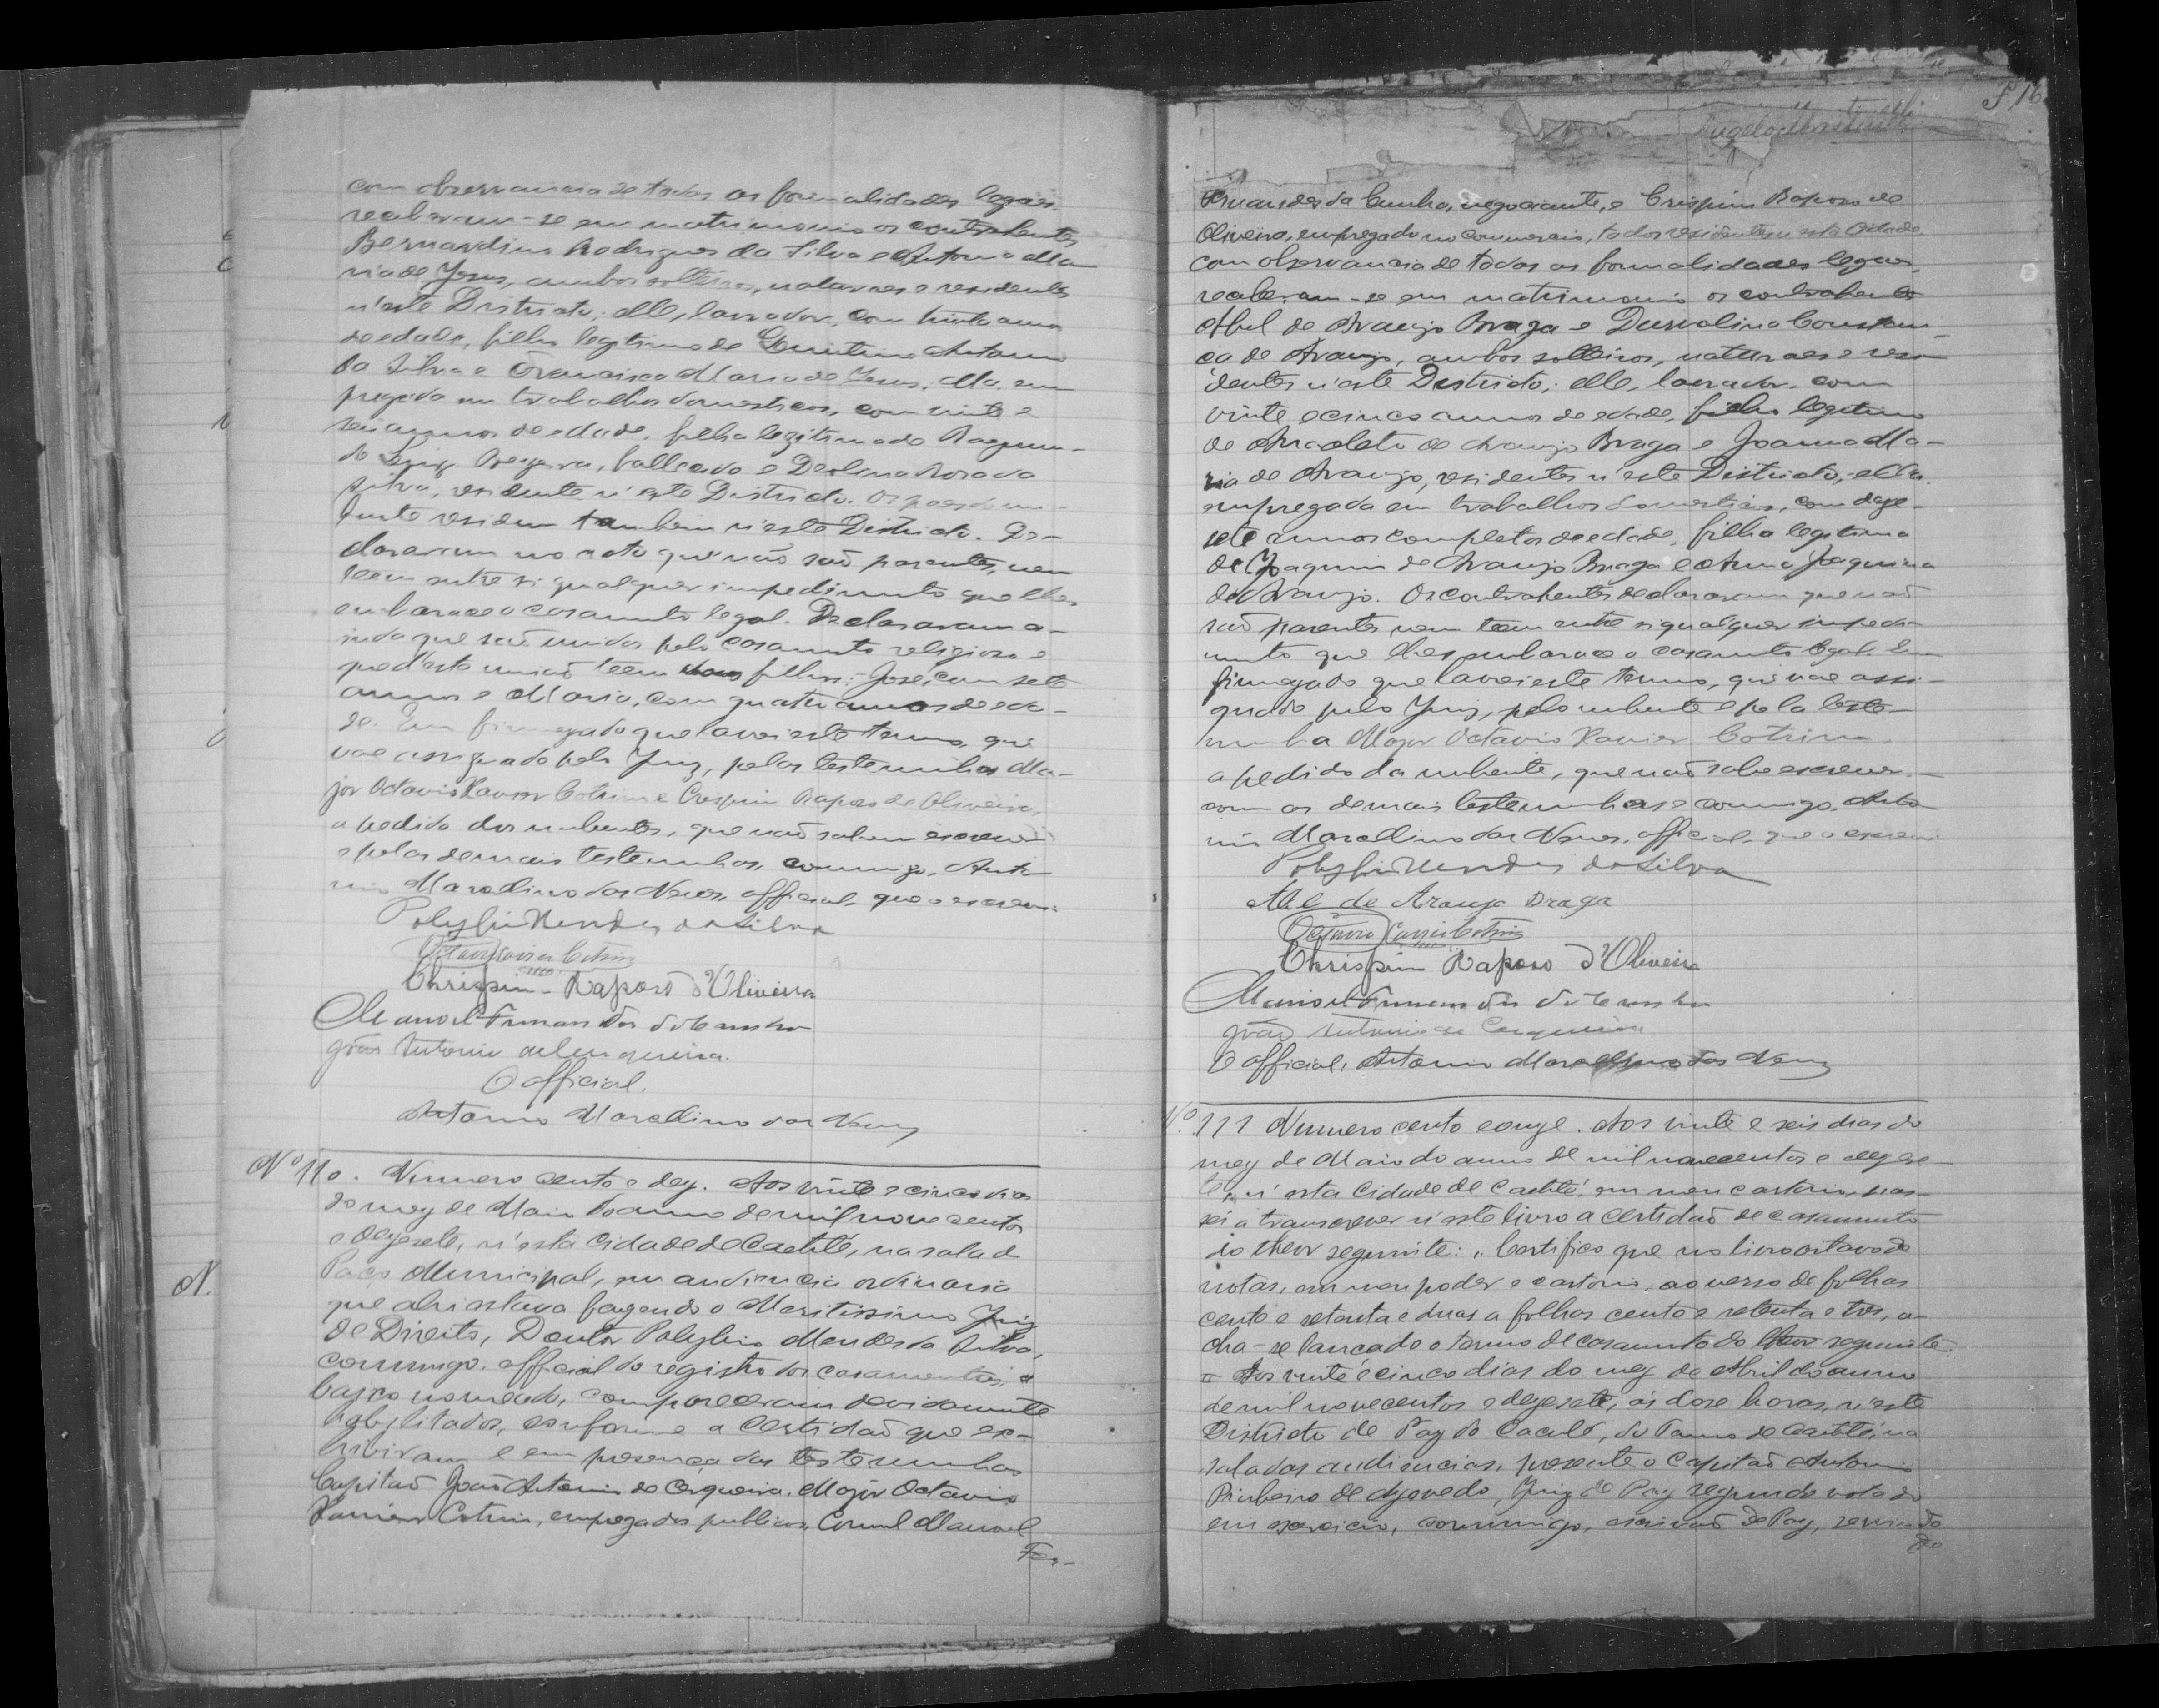 com observancia de todas as formalidades legaes
receberam-se em matrimonio os contrahentes
Bernardino Rodrigues da Silva e Antonia Ma-
ria de Jesus, ambos solteiros, naturaes e residentes
n'este Districto; elle, lavrador, com trinta annos
de edade, filho legitimo de Antonio
da Silva e Francisca Maria de Jesus, ella, em-
pregada em trabalhos domesticos, com vinte e
seis annos de edade, filha legitima de Raymun-
do Luiz Bezerra, fallecido e Rosa da
Silva, residente n'este Districto. Os paes do nu-
bente residem tambem n'este Districto. De-
clararam no acto que não são parentes, nem
teem entre si qualquer impedimento que lhes
embarace o casamento legal. Declararam a-
inda que são unidos pelo casamento religioso e
que d'esta união teem dous filhos: José, com sete
annos e Maria, com quatro annos de eda-
de. Em firmeza do que lavrei este termo, que
vae assignado pelo Juiz, pelas testemunhas Ma-
jor Octavio Xavier Cotrim e Crespim Raposo de Oliveira,
a pedido dos nubentes, que não sabem escrever
e pelas demais testemunhas, commigo, Anto-
nio Marcellino das Neves, official que o escrevi.
Polybio Mendes da Silva
Octavio Xavier Cotrim
Chrispim Raposo d'Oliveira
Manoel Fernandes da Cunha
João Antonio de Cerqueira.
O official.
Antonio Marcellino das Neves
Nº 110. Numero cento e dez. Aos vinte e cinco dias
do mez de Maio do anno de mil nove centos
e dezesete, n'esta Cidade de Caetité, na sala do
Paço Municipal, em audiencia ordinaria
que ahi estava fazendo o Meritissimo Juiz
de Direito, Doutor Polybio Mendes da Silva,
commigo, official do registro dos casamentos, a-
baixo nomeado, compareceram devidamente
habilitados, conforme a certidão que ex-
hibiram e em presença das testemunhas
Capitão João Antonio de Cerqueira, Major Octavio
Xavier Cotrim, empregados publicos, Coronel Manoel
Fer-
N.
F. 16
Angelo Martinelli
Fernandes da Cunha, negociante, e Crespim Raposo de
Oliveira, empregado no commercio, todos residentes n'esta Cidade
com observancia de todas as formalidades legaes,
receberam-se em matrimonio os contrahentes
Abel de Araujo Braga e Durvalina Constan-
ça de Araujo, ambos solteiros, naturaes e resi-
dentes n'este Districto; elle, lavrador, com
vinte e cinco annos de edade, filho legitimo
de Anacleto de Araujo Braga e Joanna Ma-
ria de Araujo, residentes n'este Districto; ella
empregada em trabalhos domesticos, com deze-
sete annos completos de edade, filha legitima
de Joaquim de Araujo Braga e Anna Joaquina
de Araujo. Os contrahentes declararam que não
são parentes nem teem entre si qualquer impedi-
mento que lhes embarace o casamento legal. Em
firmeza do que lavrei este termo, que vae assi-
gnado pelo Juiz, pelo nubente e pela teste-
munha Major Octavio Xavier Cotrim,
a pedido da nubente, que não sabe escrever,
com as demais testemunhas e commigo, Anto-
nio Marcellino das Neves, official, que o escrevi
Polybio Mendes da Silva
Abel de Araujo Braga
Octavio Xavier Cotrim
Chrispim Raposo d'Oliveira
Manoel Fernandes da Cunha
João Antonio de Cerqueira
O official, Antonio Marcellino das Neves
Nº 111 Numero cento e onze. Aos vinte e seis dias do
mez de Maio do anno de mil novecentos e dezese-
te, n'esta Cidade de Caetité, em meu cartorio, pas-
sei a transcrever n'este livro a certidão de casamento
do theor seguinte: "Certifico que no livro oitavo de
notas, em meu poder e cartorio, ao verso de folhas
cento e setenta e duas a folhas cento e setenta e tres, a-
cha-se lançado o termo de casamento do theor seguinte:
"Aos vinte e cinco dias do mez de Abril do anno
de mil novecentos e dezesete, ás doze horas, n'este
Districto de Paz do Caculé, do Termo de Caetité, na
sala das audiencias, presente o Capitão Antonio
Pinheiro de Azevedo, Juiz de Paz segundo votado
em exercicio, commigo, escrivão de Paz, servindo
de